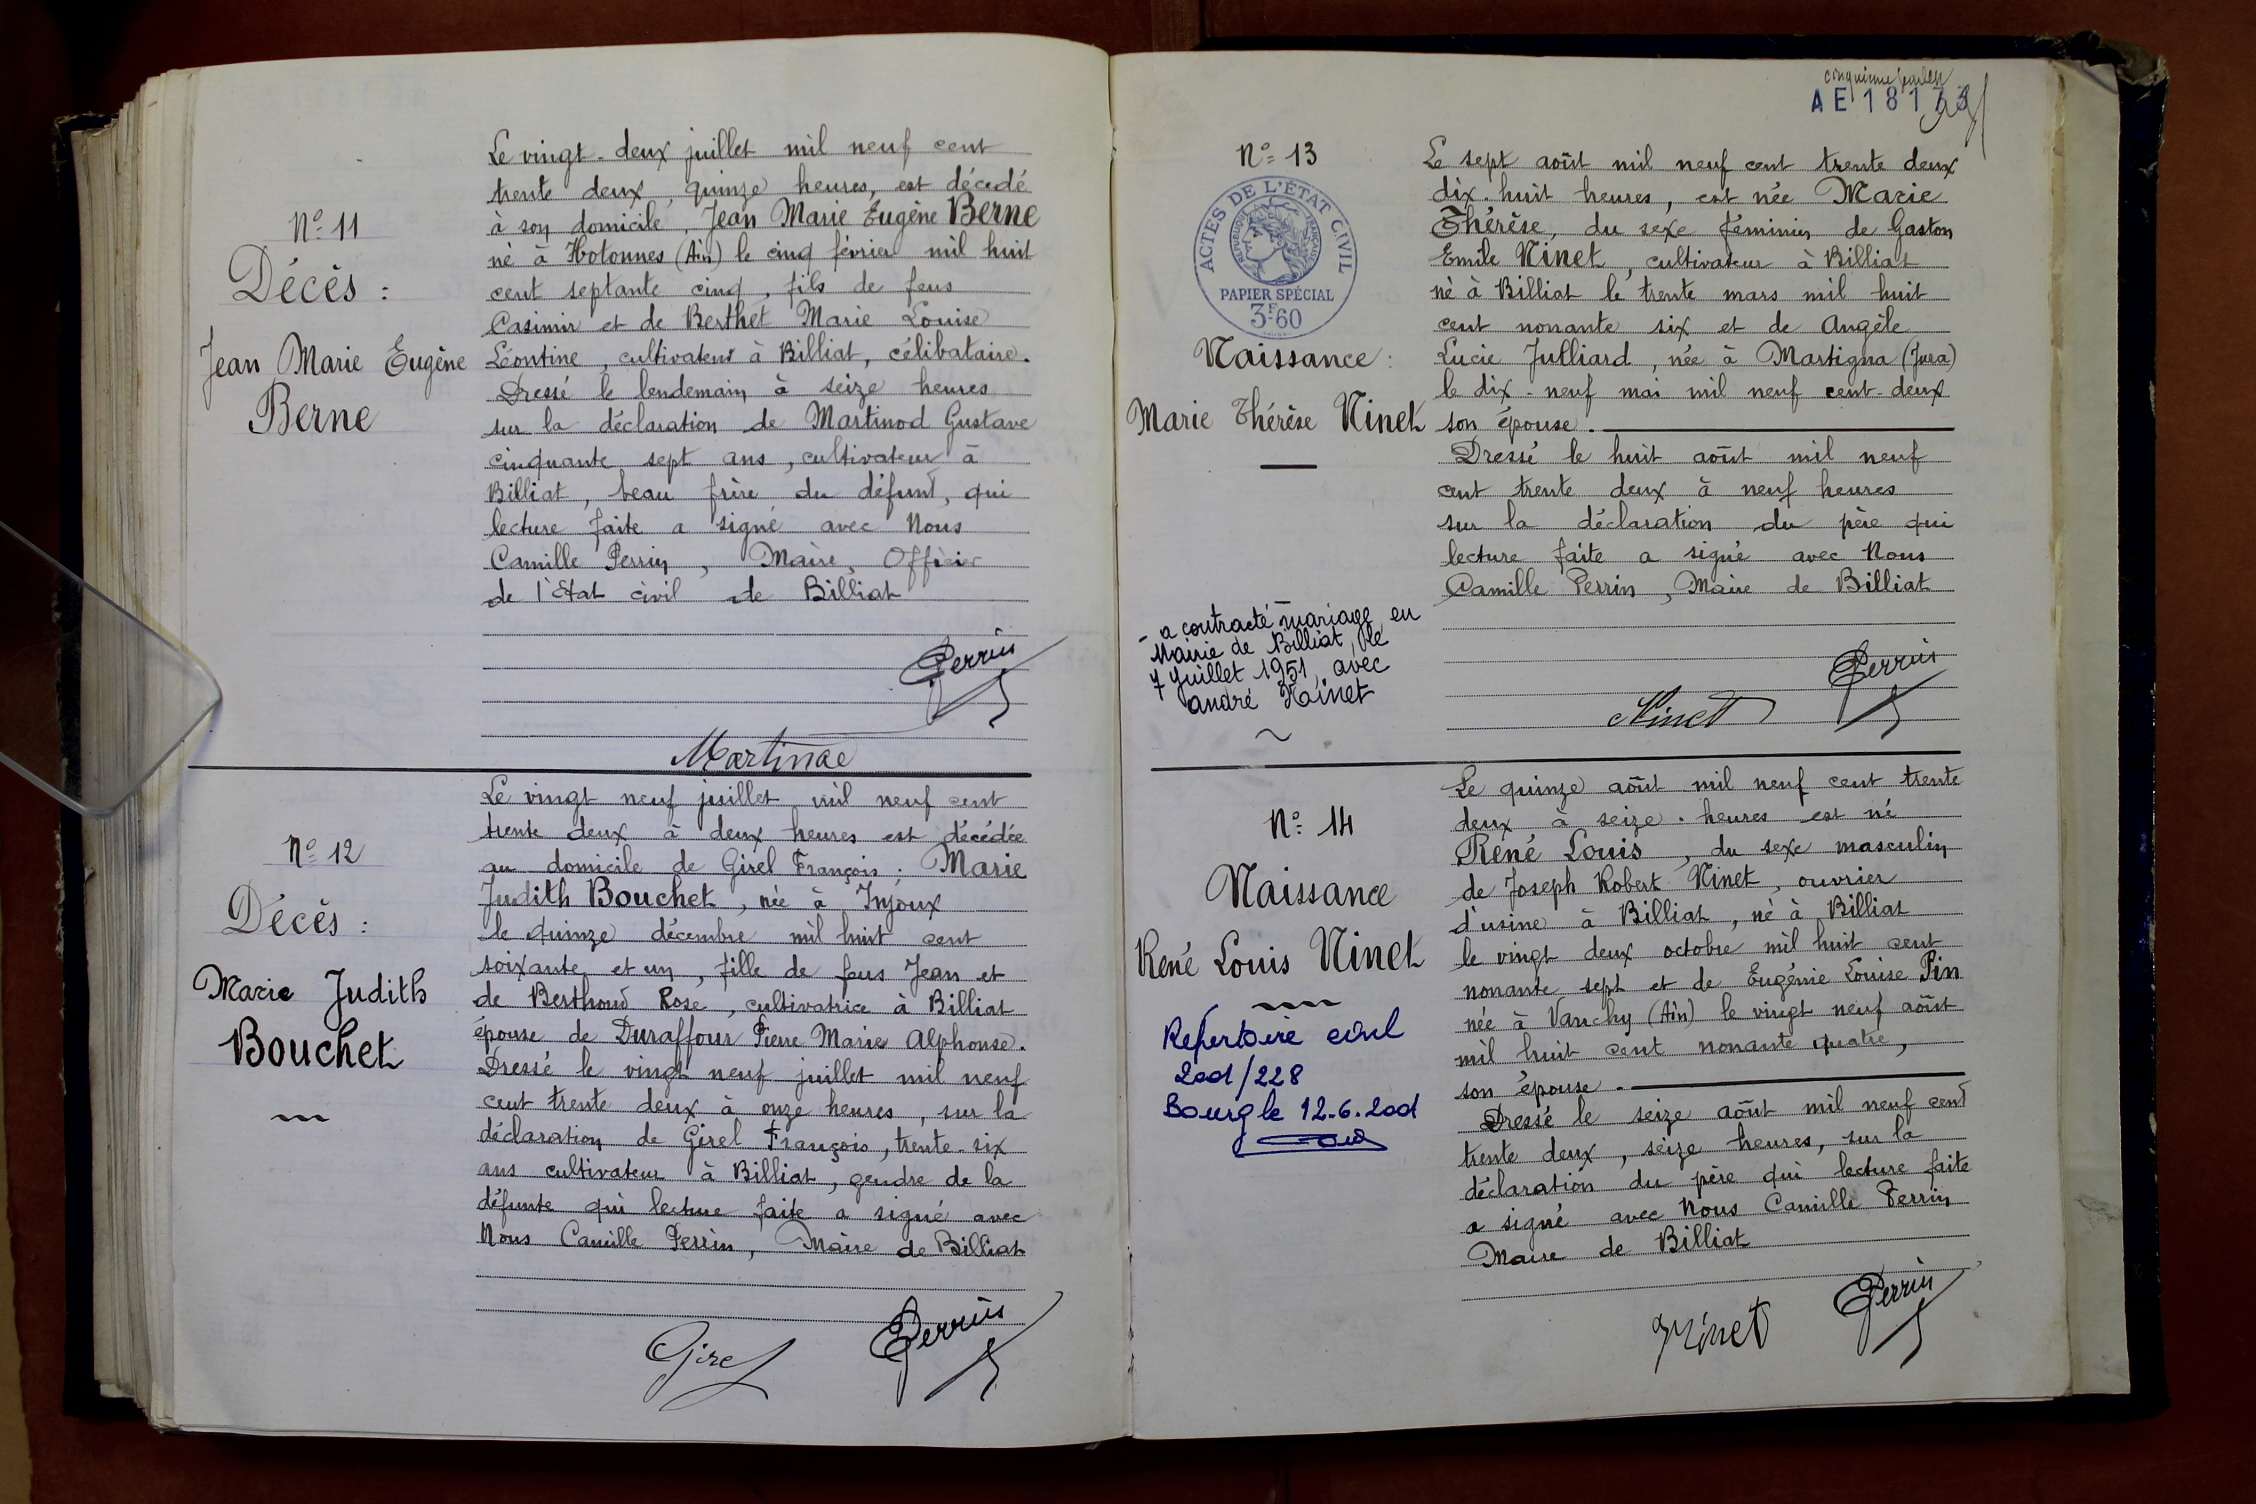 Nº 11
Décès :
Jean Marie Eugène
Berne
Le vingt-deux juillet mil neuf cent
trente deux, quinze heures, est décédé
à son domicile, Jean Marie Eugène Berne
né à Hotonnes (Ain) le cinq février mil huit
cent septante cinq, fils de feus
Casimir et de Berthet Marie Louise
Léontine, cultivateur à Billiat, célibataire.
Dressé le lendemain à seize heures
sur la déclaration de Martinod Gustave
cinquante sept ans, cultivateur à
Billiat, beau frère du défunt, qui
lecture faite a signé avec Nous
Camille Perrin, Maire, Officier
de l'Etat civil de Billiat
Perrin
Nº 12
Décès :
Marie Judith
Bouchet
Le vingt neuf juillet mil neuf cent
trente deux à deux heures est décédée
au domicile de Girel François : Marie
Judith Bouchet, née à Injoux
le quinze décembre mil huit cent
soixante et un, fille de feus Jean et
de Berthoud Rose, cultivatrice à Billiat
épouse de Duraffour Pierre Marie Alphonse.
Dressé le vingt neuf juillet mil neuf
cent trente deux à onze heures, sur la
déclaration de Girel François, trente-six
ans cultivateur à Billiat, gendre de la
défunte qui lecture faite a signé avec
Nous Camille Perrin, Maire de Billiat
Girel
Perrin
AE 181
Nº 13
ACTES DE L'ÉTAT CIVIL
RÉPUBLIQUE FRANÇAISE
PAPIER SPÉCIAL
3F60
Naissance :
Marie Thérèse Ninet
a contracté mariage en
Mairie de Billiat, le
7 Juillet 1951, avec
andré Ninet
Le sept août mil neuf cent trente deux
dix-huit heures, est née Marie
Thérèse, du sexe féminin de Gaston
Emile Ninet, cultivateur à Billiat
né à Billiat le trente mars mil huit
cent nonante six et de Angèle
Lucie Julliard, née à Martigna (Jura)
le dix-neuf mai mil neuf cent-deux
son épouse.
Dressé le huit août mil neuf
cent trente deux à neuf heures
sur la déclaration du père qui
lecture faite a signé avec Nous
Camille Perrin, Maire de Billiat
Ninet
Perrin
Nº 14
Naissance
René Louis Ninet
Repertoire civil
2001/228
Bourg le 12.6.2001
Le quinze août mil neuf cent trente
deux à seize heures est né
René Louis, du sexe masculin
de Joseph Robert Ninet, ouvrier
d'usine à Billiat, né à Billiat
le vingt deux octobre mil huit cent
nonante sept et de Eugénie Louise Pin
née à Vanchy (Ain) le vingt neuf août
mil huit cent nonante quatre,
son épouse.
Dressé le seize août mil neuf cent
trente deux, seize heures, sur la
déclaration du père qui lecture faite
a signé avec Nous Camille Perrin
Maire de Billiat
Ninet
Perrin